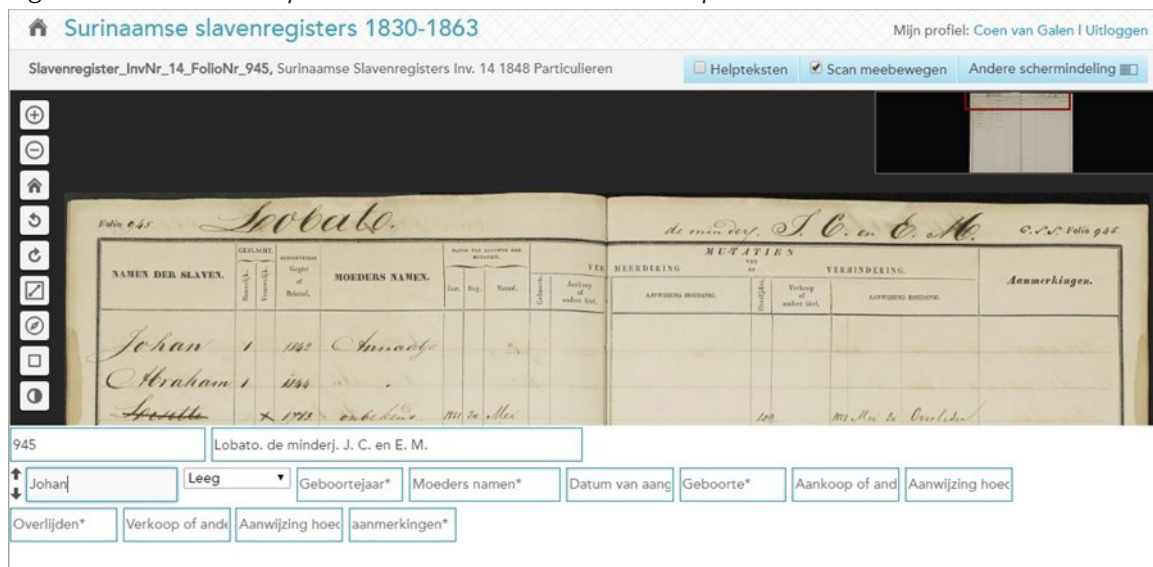 Surinaamse slavenregisters 1830-1863
Mijn profiel: Coen van Galen | Uitloggen
Slavenregister_InvNr_14_FolioNr_945, Surinaamse Slavenregisters Inv. 14 1848 Particulieren
Helpteksten
Scan meebewegen
Andere schermindeling
Folio 945
Lobato.
de minderj. J. C. en E. M.
G.S.S. Folio 945
NAMEN DER SLAVEN.
GESLACHT.
Mannelijk.
Vrouwelijk.
MOEDERS NAMEN.
Jaar. Dag. Maand.
MUTATIEN
VERMEERDERING
Geboorte.
Aankoop of andere titel.
AANWIJZING HOEDANIG.
VERMINDERING.
Overlijden.
Verkoop of andere titel.
AANWIJZING HOEDANIG.
Aanmerkingen.
Johan 1 1842 Annaatje
Abraham 1 1844
1783 onbekend 20 Mei
Mei 20 Overleden
945
Lobato. de minderj. J. C. en E. M.
Johan
Leeg
Geboortejaar*
Moeders namen*
Datum van aang
Geboorte*
Aankoop of and
Aanwijzing hoed
Overlijden*
Verkoop of ande
Aanwijzing hoed
aanmerkingen*